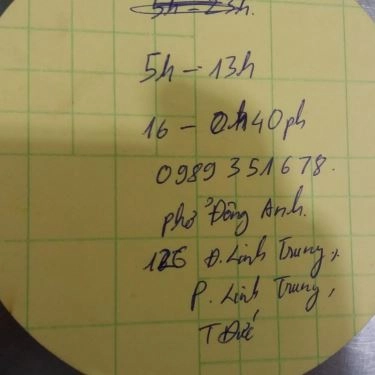 5h - 23h.
5h - 13h
16 - 0h40ph
0989 351678.
phở Đông Anh.
126 Đ. Linh Trung,
P. Linh Trung,
T Đức